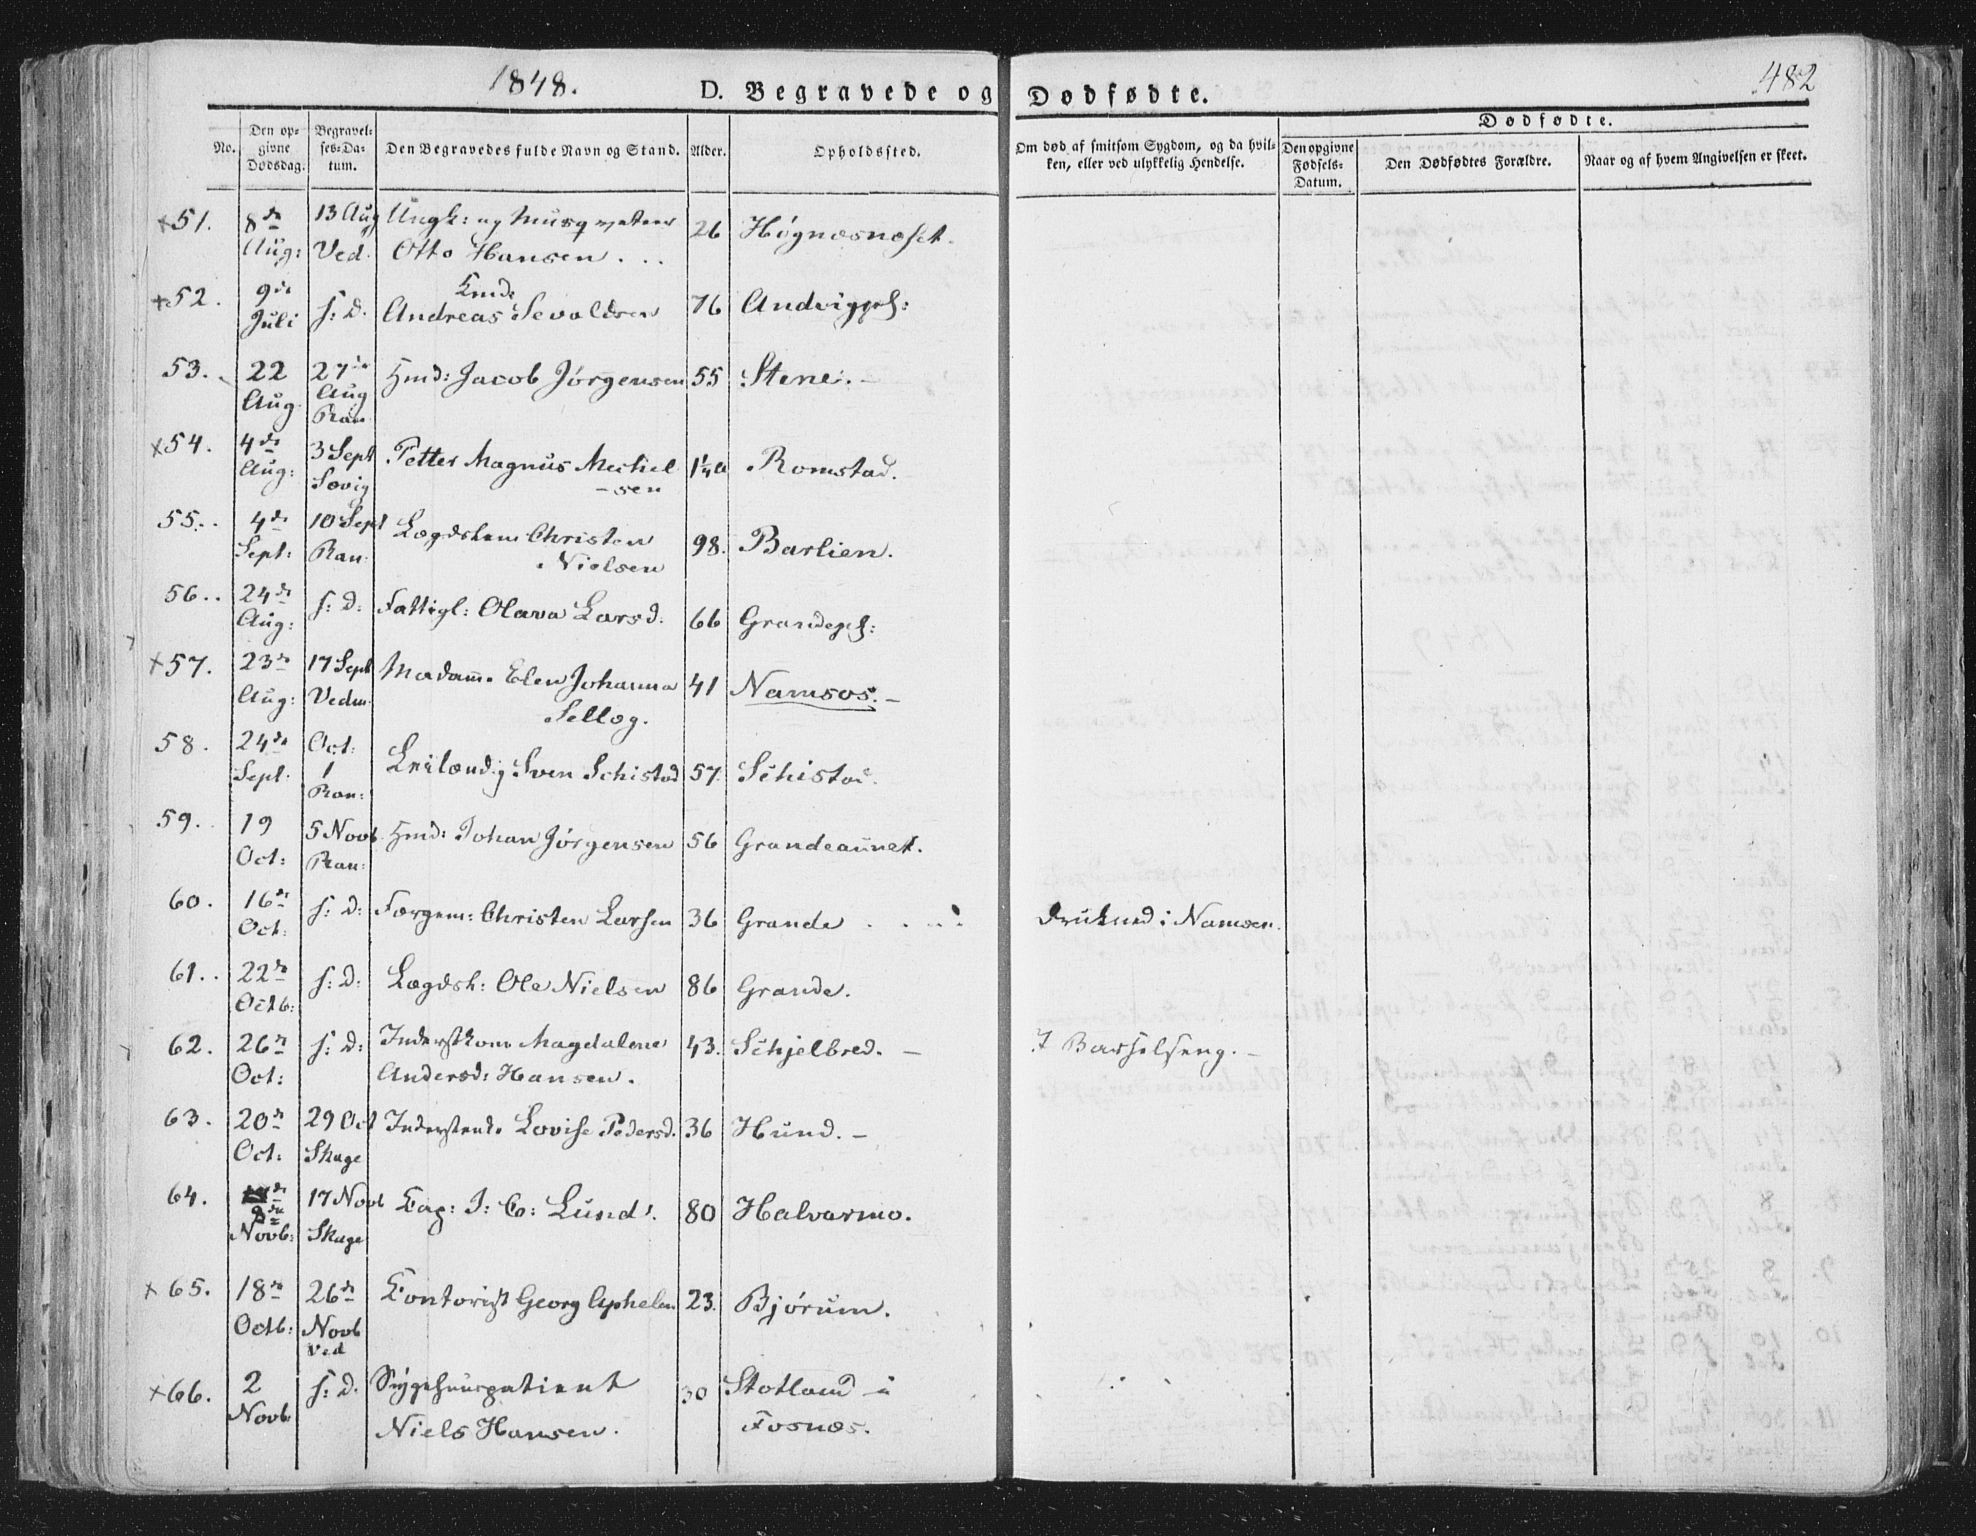 1848.
D. Begravede og Dødfødte.
482
No.
Den opgivne Dødsdag.
Begravelses-Datum.
Den Begravedes fulde Navn og Stand.
Alder.
Opholdssted.
Om død af smitsom Sygdom, og da hvilken, eller ved ulykkelig Hendelse.
Dødfødte.
Den opgivne Fødsels-Datum.
Den Dødfødtes Forældre.
Naar og af hvem Angivelsen er skeet.
×51. 8de 13 Aug Ungk: og 26 Høgnæsnæset.
Aug: Ved. Otto Hansen . . .
×52. 9de Juli f: D. Andreas Sevaldsen 76
53. 22 27de Hmd: Jacob Jørgensen 55 Stene. –
Aug Aug
Ran
×54. 4de 3 Sept Petter Magnus Mechel 1¼ a Romstad.
Aug: Sævig -sen
55. 4de 10 Sept Lægdslem Christen 98. Barlien.
Sept: Ran: Nielsen
56. 24de f: D: Fattigl: Olava Larsd. 66 Grandepl:
Aug:
×57. 23de 17 Sept Madam Elen Johanna 41 Namsos. –
Aug: Vedm. Sellæg.
58. 24de Oct: Leilænding Sven Schistad 57. Schistad.
Sept. 1
Ran:
59. 19 5 Novb Hmd: Johan Jørgensen 56 Grandeaunet.
Oct: Ran:
60. 16de f: D: Færgem: Christen Larsen 36 Grande . . . . drukned i Namsen.
Oct:
61. 22de f: D: Lægdsh: Ole Nielsen 86 Grande.
Octb:
62. 26de f: D: Inderstkone Magdalene 43. Schjelbred. – I Barselseng. –
Oct: Andersd: Hansen.
63. 20de 29 Oct Lovise Pedersd. 36 Hund. –
Oct: Skage
64. 17 Novb Cap: J: C: Lund. 80 Halvarmo.
9de
Novb: Skage
×65. 18de 26de Contorist Georg 23. Bjørum.
Octb: Novb
Ved
×66. 2 f: D. Sygehuuspatient 30 Stotland i
Novb Niels Hansen. Fosnæs.